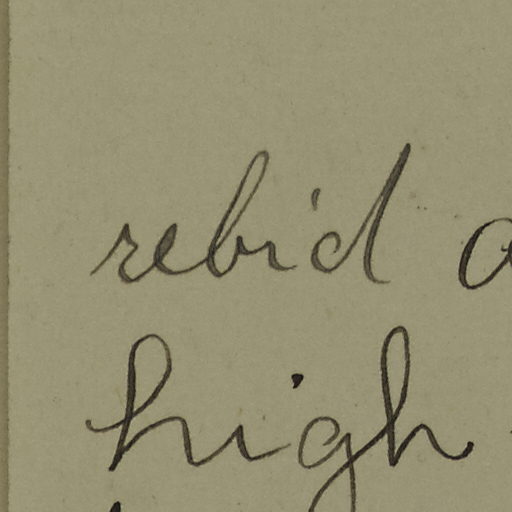 rebid
high